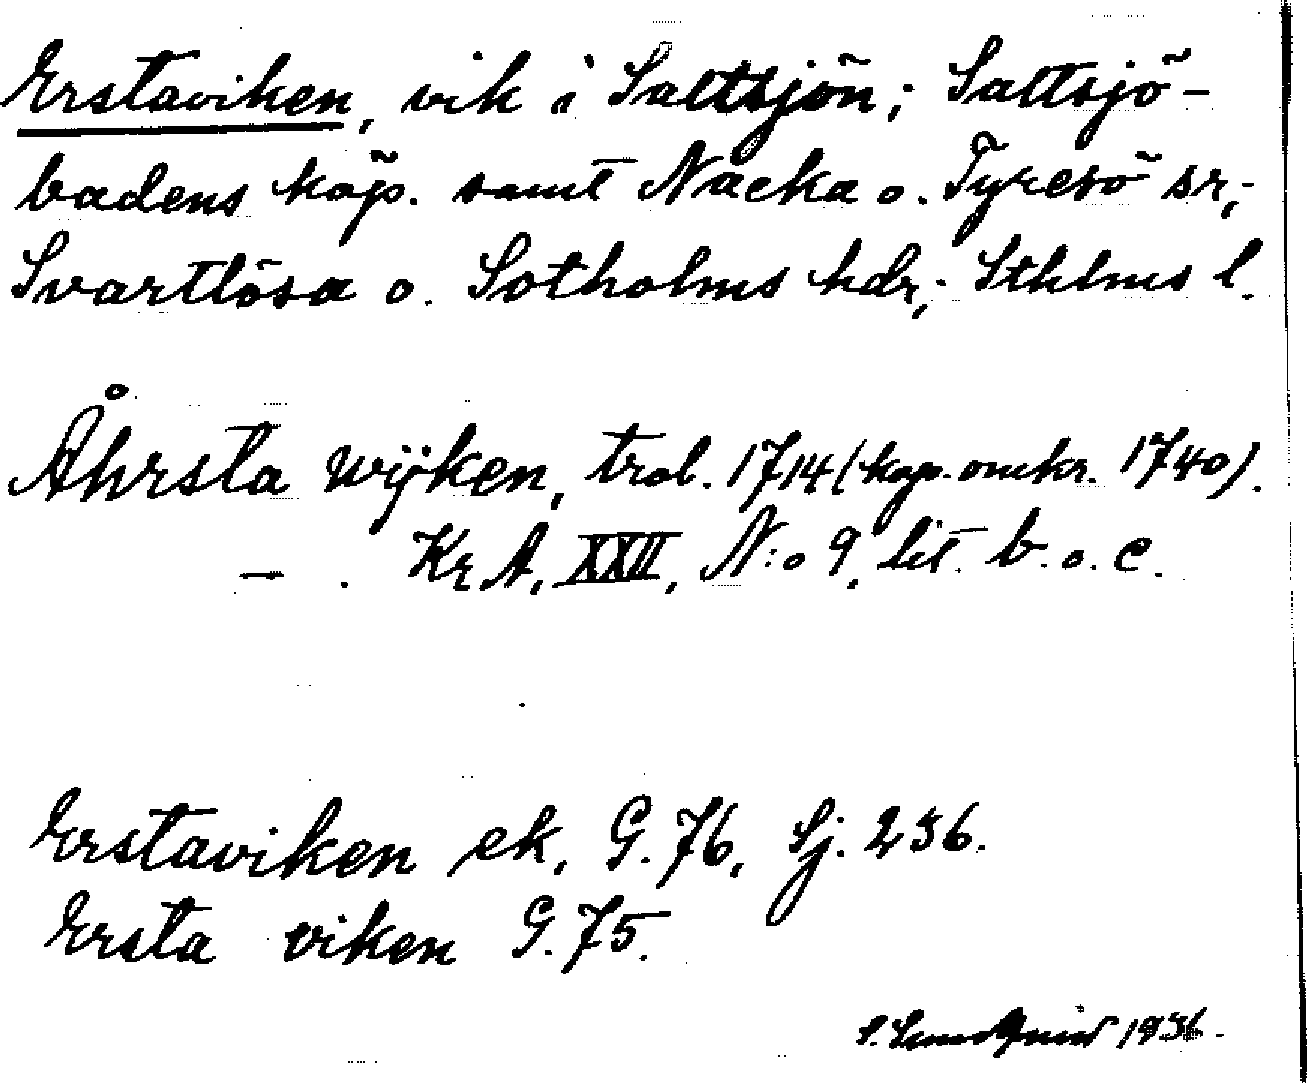 Erstaviken, vik i Saltsjön; Saltsjö-
badens köp. samt Nacka o. Tyresö sr,;
Svartlösa o. Sotholms hdr,; Sthlms l.
Åhrsta wijken, trol. 1714 (kop. omkr. 1740).
— . Kr A, XXII, N:o 9, lit. b. o. c.
Erstaviken ek, G. 76, Sj. 236.
Ersta viken G. 75.
1936.